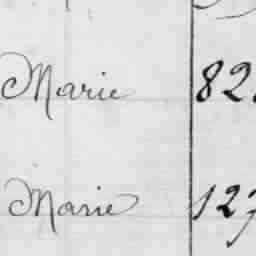 Marie 82
Marie 127